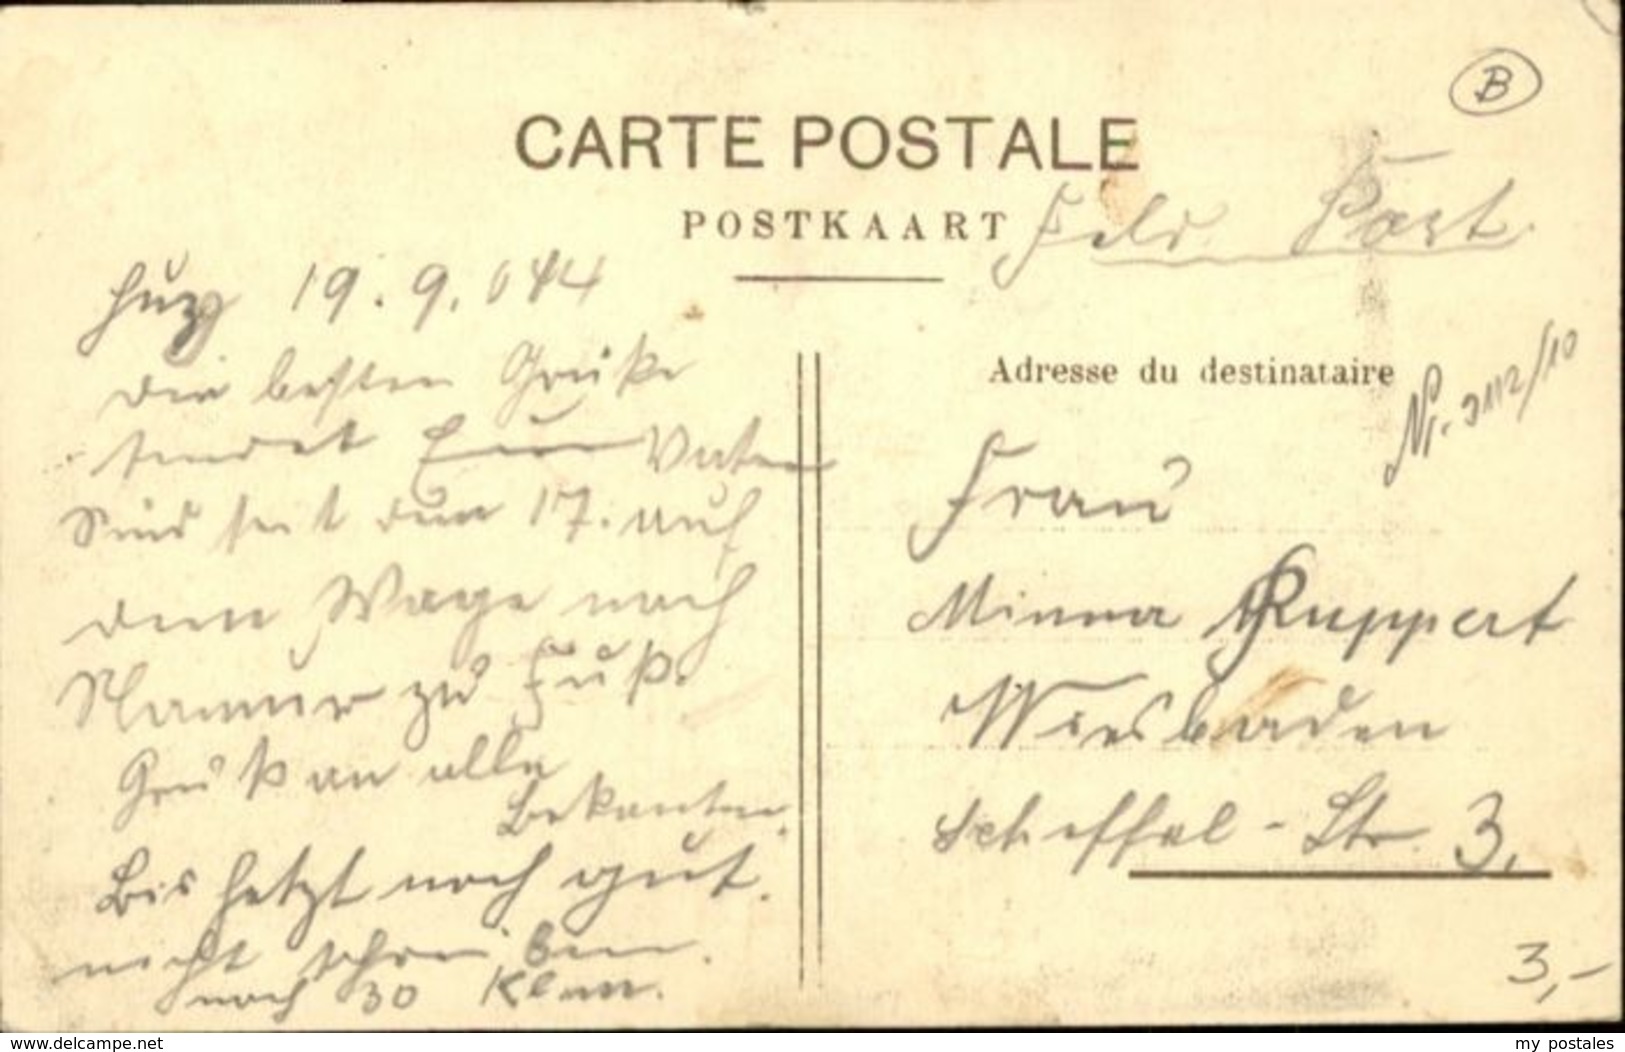 B
CARTE POSTALE
POSTKAART
Feld Post.
Huy 19. 9. 14
Die besten Grüße
sendet Euer Vater
Sind seit dem 17. auf
dem Wege nach
Namur zu Fuß.
Gruß an alle
Bekanten.
Bis jetzt noch gut.
nicht schreiben.
noch 30 Klm.
Adresse du destinataire
Nr. 3112/10
Frau
Minna Ruppert
Wiesbaden
Scheffel-Str. 3.
3,-
delcampe.net
my_postales